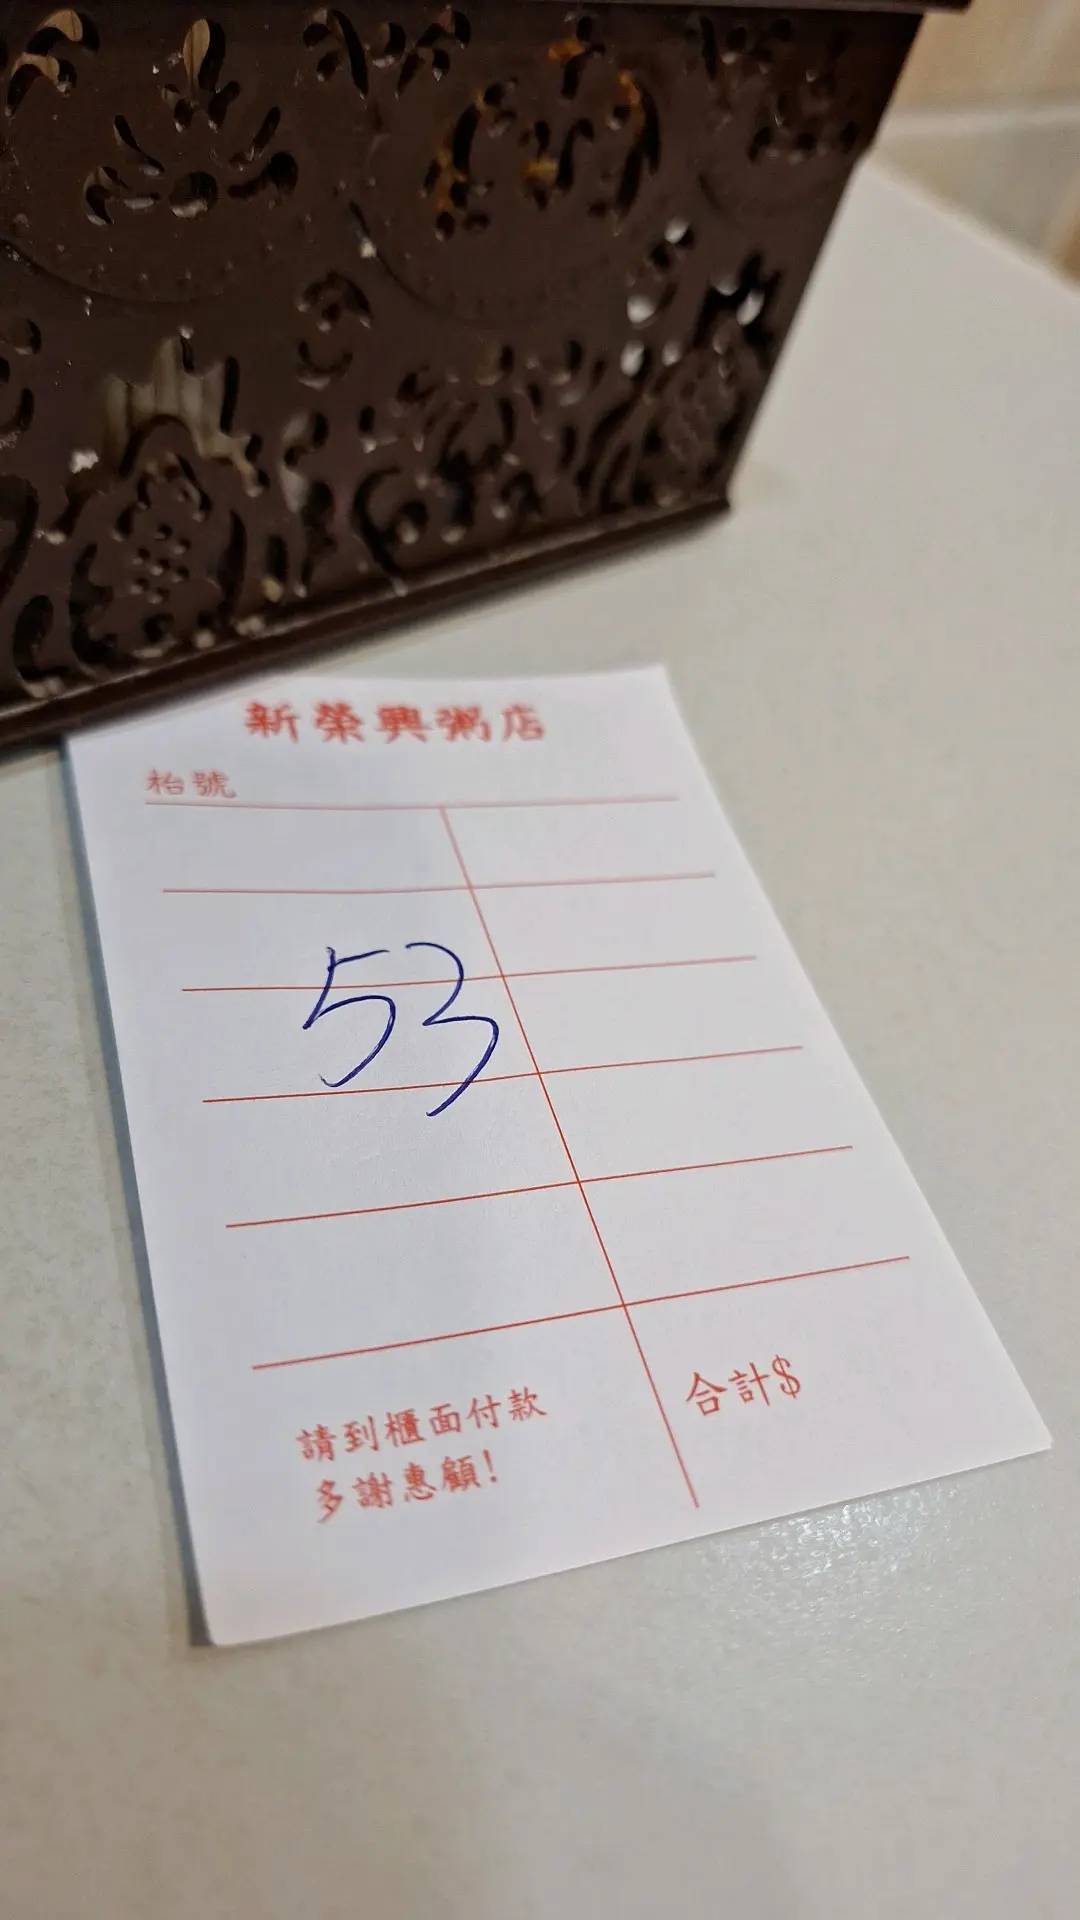 新榮興粥店
枱號
53
合計$
請到櫃面付款
多謝惠顧!